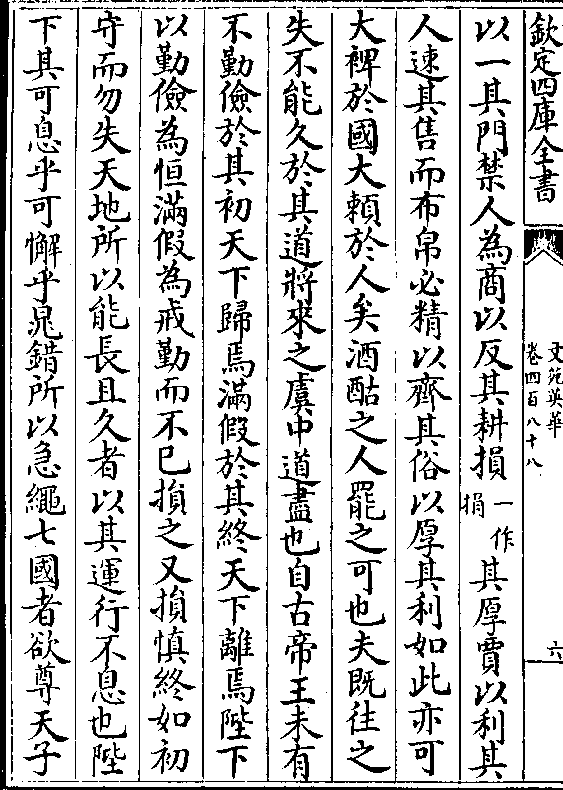 欽定四庫全書
文苑英華
卷四百八十八
六
以一其門禁人為商以反其耕損一作捐其厚賈以利其
人速其售而布帛必精以齊其俗以厚其利如此亦可
大裨於國大賴於人矣酒酤之人罷之可也夫既往之
失不能久於其道將來之虞中道盡也自古帝王未有
不勤儉於其初天下歸焉滿假於其終天下離焉陛下
以勤儉為恒滿假為戒勤而不已損之又損慎終如初
守而勿失天地所以能長且久者以其運行不息也陛
下其可息乎可懈乎晁錯所以急繩七國者欲尊天子